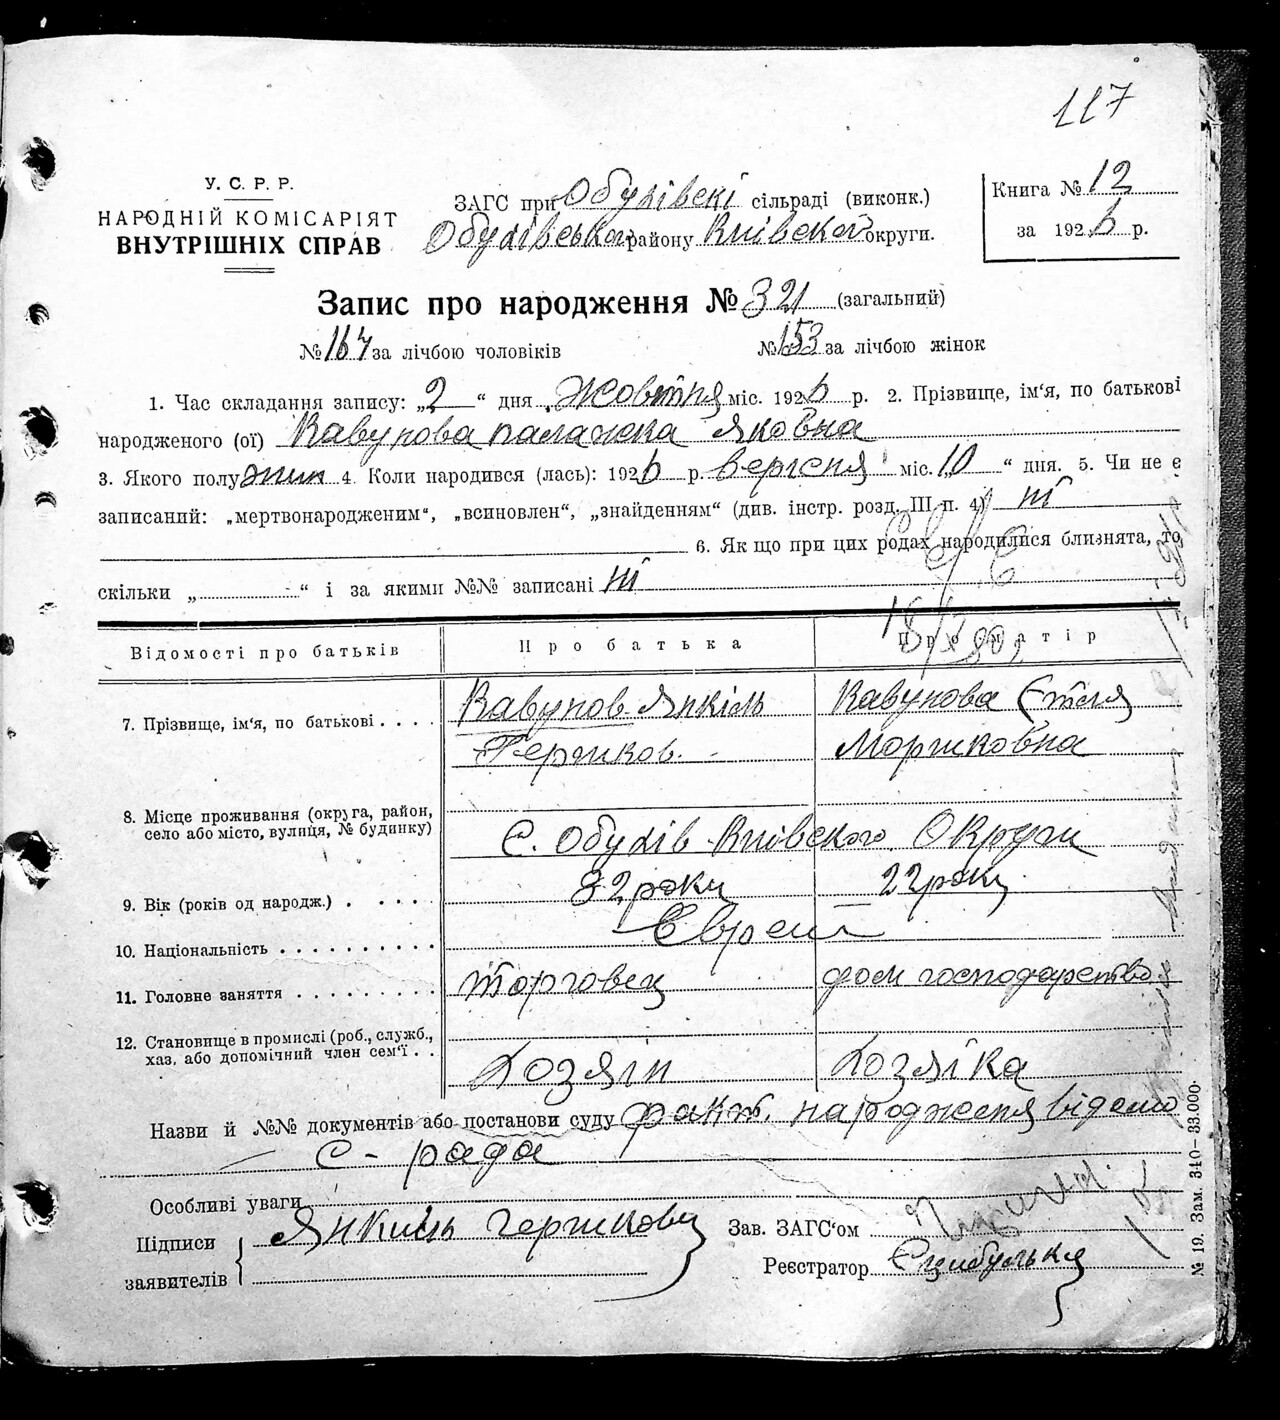 117
У. С. Р. Р.
НАРОДНІЙ КОМІСАРІЯТ
ВНУТРІШНІХ СПРАВ
ЗАГС при Обухівскі сільраді (виконк.)
Обухівського району Київскої округи.
Книга № 12
за 1926 р.
Запис про народження № 321 (загальний)
№ 167 за лічбою чоловіків № 153 за лічбою жінок
1. Час складання запису: „2“ дня Жовтня міс. 1926 р. 2. Прізвище, ім‘я, по батькові
народженого (ої) Кавунова Палажка Яковна
3. Якого полу жин 4. Коли народився (лась): 1926 р. вересня міс. 10 “ дня. 5. Чи не є
записаний: „мертвонародженим“, „всиновлен“, „знайденням“ (див. інстр. розд. III п. 4) ні
6. Як що при цих родах народилися близнята, то
скільки „ “ і за якими №№ записані ні
Відомості про батьків Про батька Про матір
7. Прізвище, ім‘я, по батькові . . . . Кавунов Янкіль Кавунова Етля
Гершков. Моршковна
8. Місце проживання (округа, район,
село або місто, вулиця, № будинку) С. Обухів Київского Округи
9. Вік (років од народж.) . . . . . 32 роки 22 роки
10. Національність . . . . . . . . . . Євреи
11. Головне заняття . . . . . . . . . Торговец дом господарство
12. Становище в промислі (роб., служб.,
хаз. або допомічний член сем‘ї . . Хозяін Хозяіка
Назви й №№ документів або постанови суду факт. народження відомо
С - рада
Особливі уваги
Підписи
заявителів
Янкиль Гершкович
Зав. ЗАГС‘ом
Реєстратор Єцибулька
№ 19. Зам. 340—33.000.